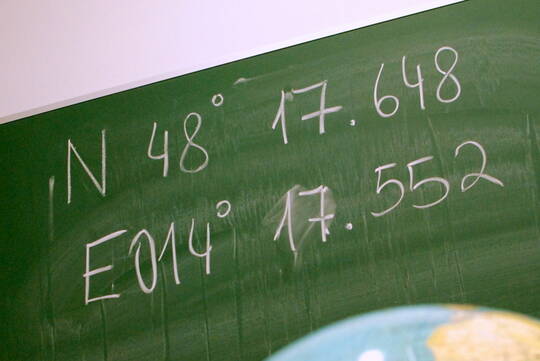 N 48° 17.648
E014° 17.552